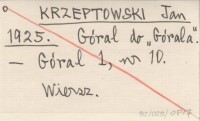 KRZEPTOWSKI Jan
1925. Góral do „Górala".
— Góral 1, nr 10.
Wiersz.